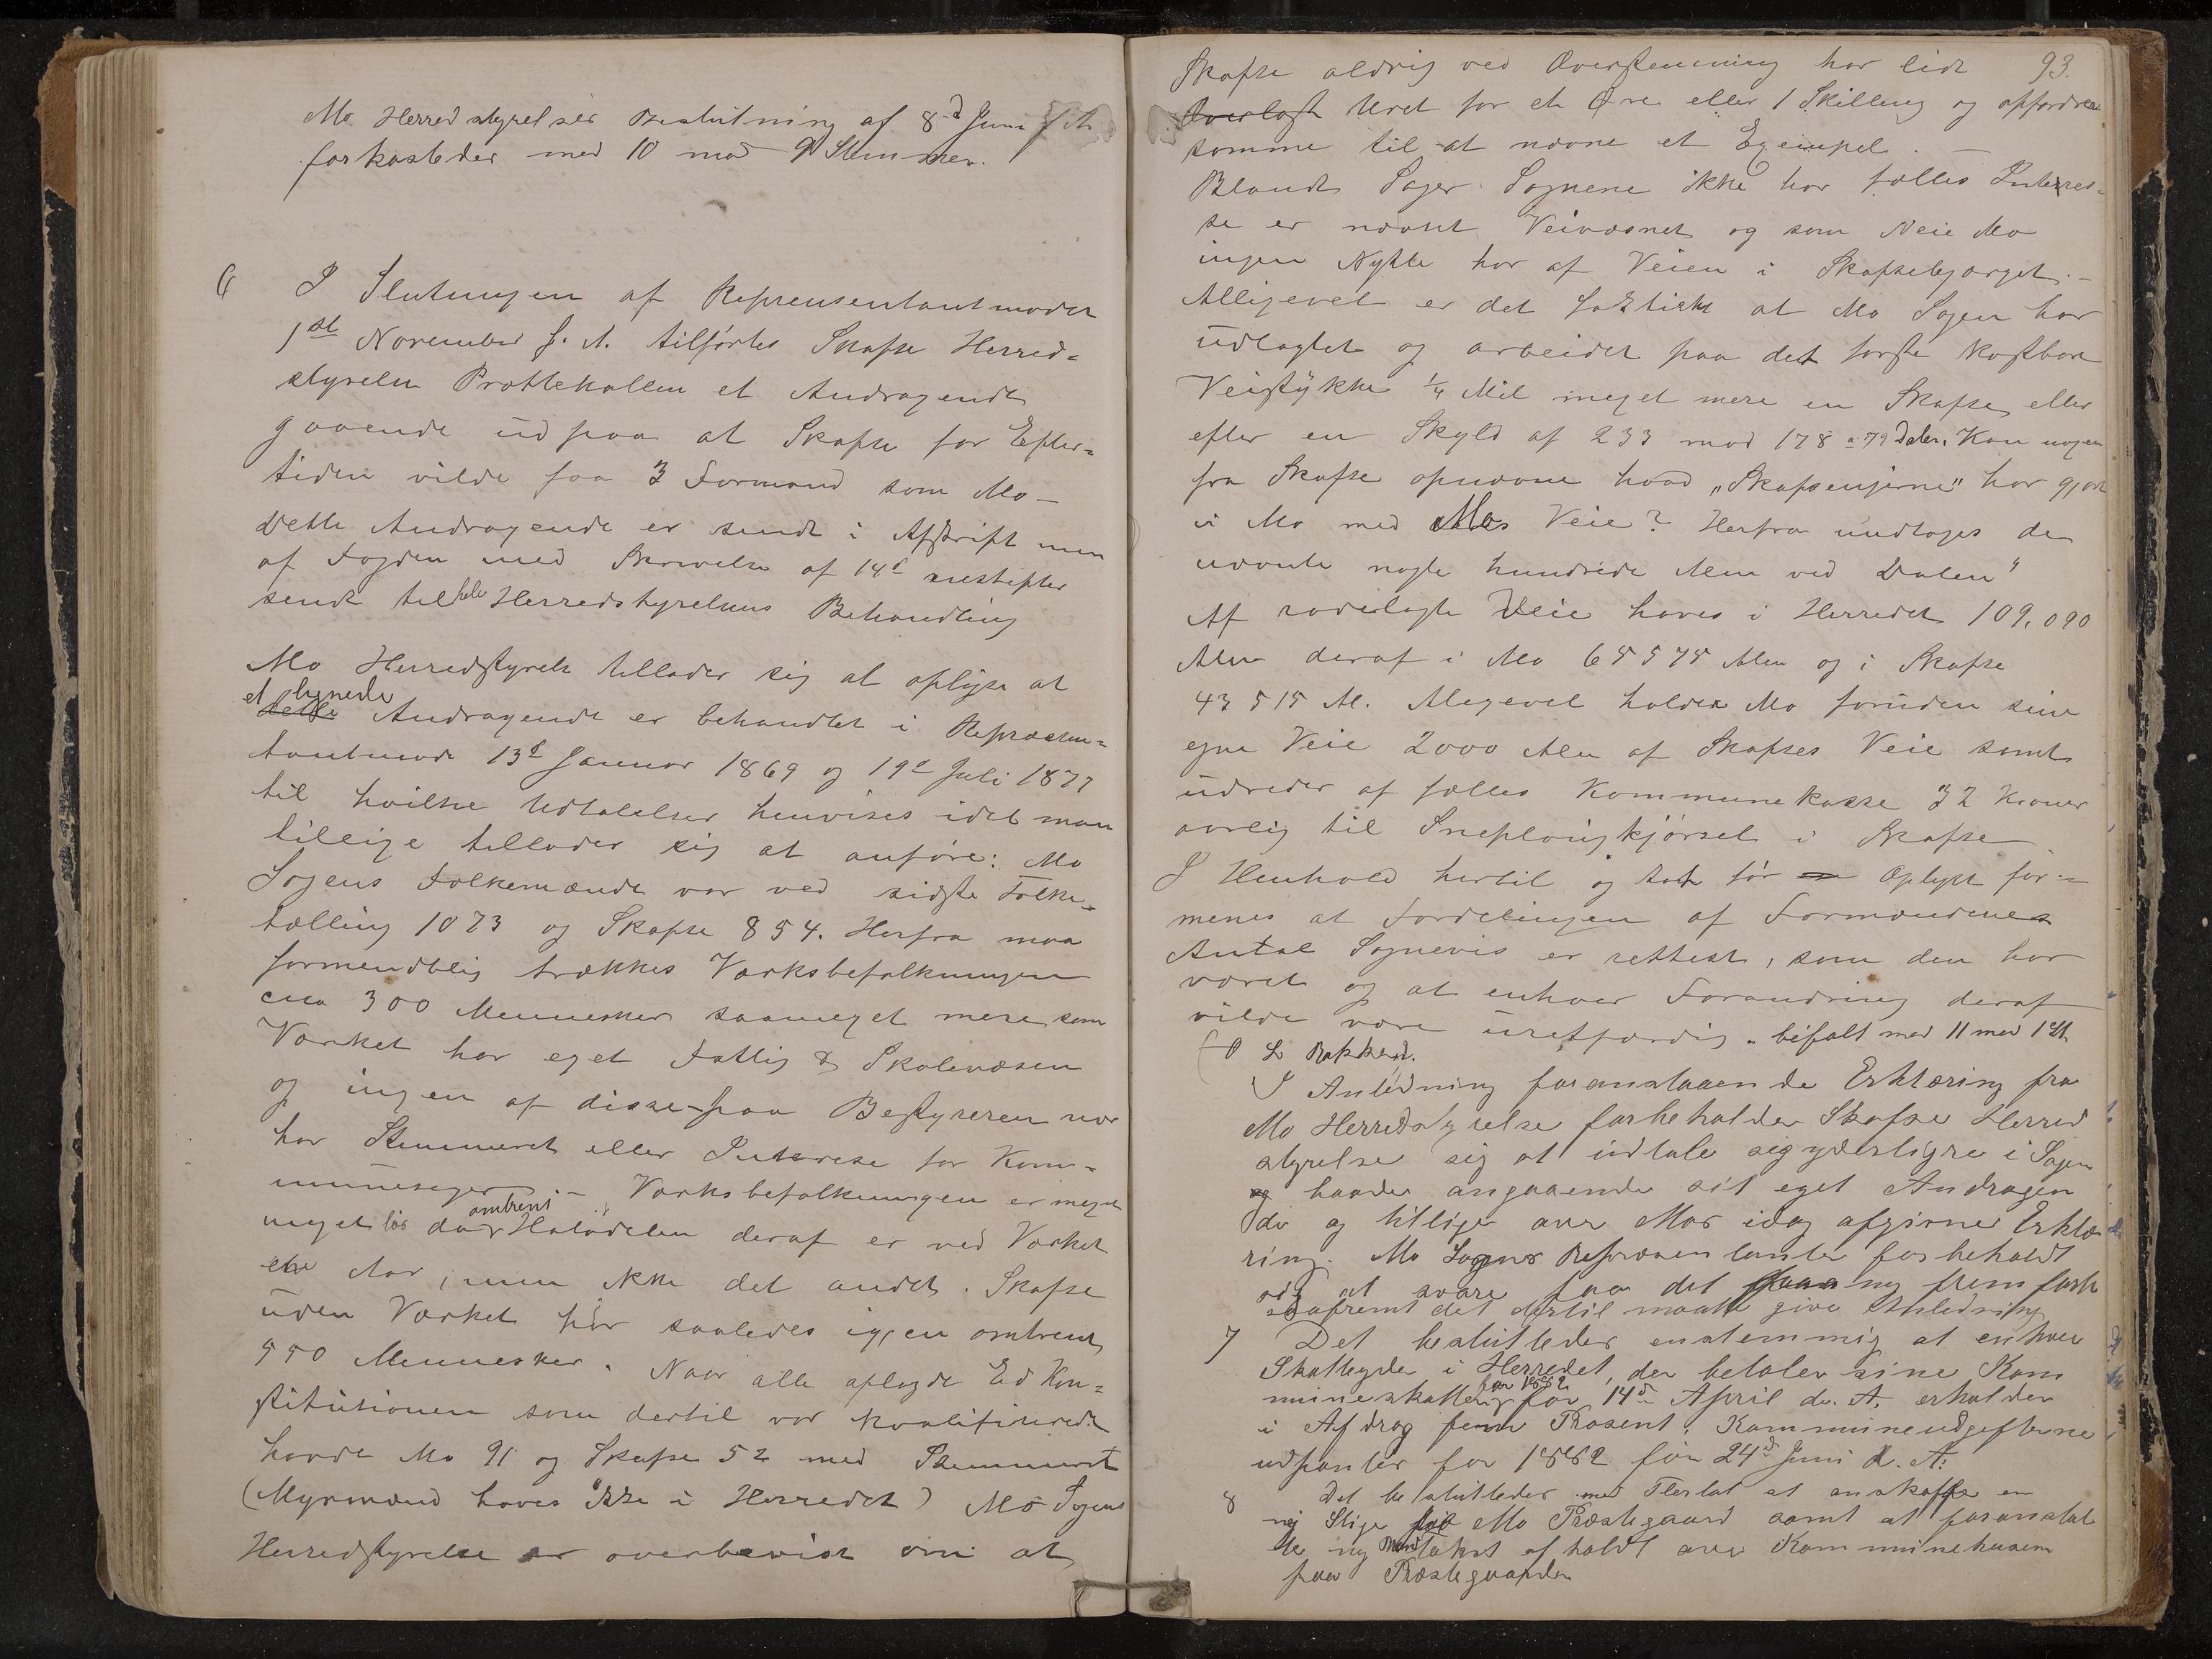 Mo Herredstyrelses Beslutning af 8d Juni f. A.
forkastedes med 10 mod 9 Stemmer.
6 I Slutningen af Repræsentantmødet
1ste November f. A. tilførtes Skafse Herred=
styrelse Protokollen et Andragende
gaaende ud paa at Skafse for Efter=
tiden vilde faa 3 Formænd som Mo –
Dette Andragende er sendt i Afskrift men
af Fogden med Skrivelse af 14d næstefter
sendt til hele Herredstyrelsens Behandling
Mo Herredstyrelse tillader sig at oplyse at
et lignende
dette Andragende er behandlet i Repræsen=
tantmøde 13d Januar 1869 og 19d Juli 1877
til hvilke Udtalelser henvises idet man
tillige tillader sig at anføre: Mo
Sogens Folkemænde var ved sidste Folke=
tælling 1073 og Skafse 854. Herfra maa
formendtlig trækkes Værksbefolkningen
cica 300 Mennesker saameget mere som
Værket har eget Fattig & Skolevæsen
og ingen af disse paa Bestyreren nær
har Stemmeret eller Interesse for Kom=
munesager – Værksbefolkningen er meget
meget løs da omtrent Halvdelen deraf er ved Værket
ene Aar, men ikke det andet. Skafse
uden Værket har saaledes igjen omtrent
550 Mennesker. Naar alle aflagde Ed Kon=
stitutionen som dertil var kvalifiserede
havde Mo 91 og Skafse 52 med Stemmeret
(Myrmænd haves ikke i Herredet) Mo Sogens
Herredstyrelse er overbevist om at
93.
Skafse aldrig ved Overstemning har lidt
Overlast Uret for et Øre eller 1 Skilling og opfordrer
samme til at nævne et Exempel. –
Blandt Sager Sognene ikke har fælles Interres=
se er nævnt Veivæsnet og som Neie Mo
ingen Nytte har af Veien i Skafsebjørget. –
Alligevel er det faktisk at Mo Sogen har
udlagtet og arbeidet paa det første kostbare
Veistykke 1/4 Mil meget mere en Skafse eller
efter en Skyld af 233 mod 178 a 79 Daler. Kan nogen
fra Skafse opnævne hvad „Skafsenjerne" har gjort
i Mo med Mos Veie? Herfra undtages de
nævnte nogle hundrede Alen ved Dalen"
Af rodelagte Veie haves i Herredet 109,090
Alen deraf i Mo 65575 Alen og i Skafse
43515 Al. Alegevel holder Mo foruden sine
egne Veie 2000 Alen af Skafses Veie samt
udreder af fælles Kommunekasse 32 Kroner
aarlig til Sneplougkjørsel i Skafse
I Henhold hertil og hvad før Oplyst for=
menes at Fordelingen af Formændenes
Antal Sognevis er rettest, som den har
været og at enhver Forandring deraf
vilde være uretfærdig. bifalt mod 11 mod 1 St.
(O L Bakken).
I Anledning foranstaaende Erklæring fra
Mo Herredstyrelse forbeholder Skafse Herred
styrelse sig at udtale sig yderligre i Sagen
og baade angaaende sit eget Andragen
de og tillige over Mos idag afgivne Erklæ
ring. Mo Sogns Repræsentanter forbeholdt
sig at svare paa det paa ny fremførte
saafremt det dertil maatte give Anledning
7 Det besluttedes enstemmig at enhver
Skatteyde i Herredet, der betaler sine Kom
muneskatter for 1882 før 14d April d. A. erholder
i Afdrag fem Prosent. Kommuneudgifterne
udpantes for 1882 før 24d Juni d. A.
8 Det besluttedes med Flertal at anskaffe en
ny Stige til Mo Præstegaard samt at foranstal
te ny Brandtakst afholdt over Kommunehusene
paa Præstegaarden